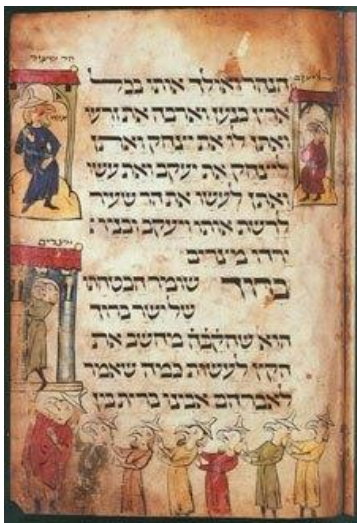 הר שעיר
הנהר ואולך אותו בכל
ארץ כנען וארבה את זרעו
ואתן לו את יצחק ואתן
ליצחק את יעקב ואת עשו
ואתן לעשו את הר שעיר
לרשת אותו ויעקב ובניו
ירדו מצרים
מצרים
ברוך שומר הבטחתו
ברוך
הוא שהקבה מחשב את
הקץ לעשות כמה שאמר
לאברהם אבינו ברית בין